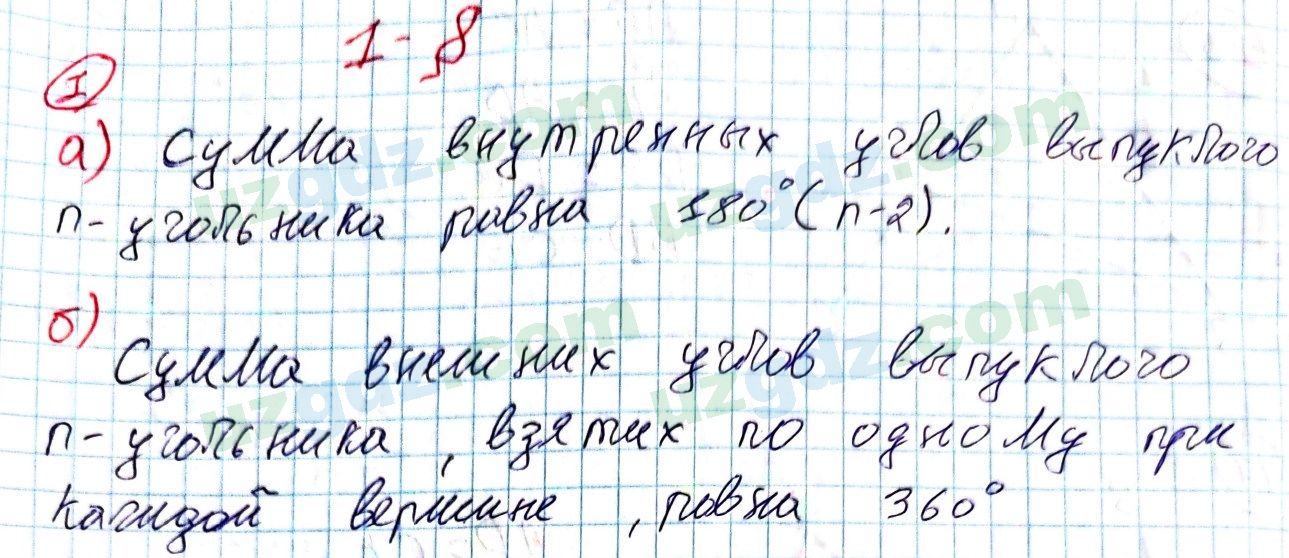 1-8
I
а) Сумма внутренных углов выпуклого
n-угольника равна 180°(n-2).
б)
Сумма внешних углов выпуклого
n-угольника, взятих по одному при
каждой вершине, равна 360°
uzgdz.com uzgdz.com
uzgdz.com uzgdz.com